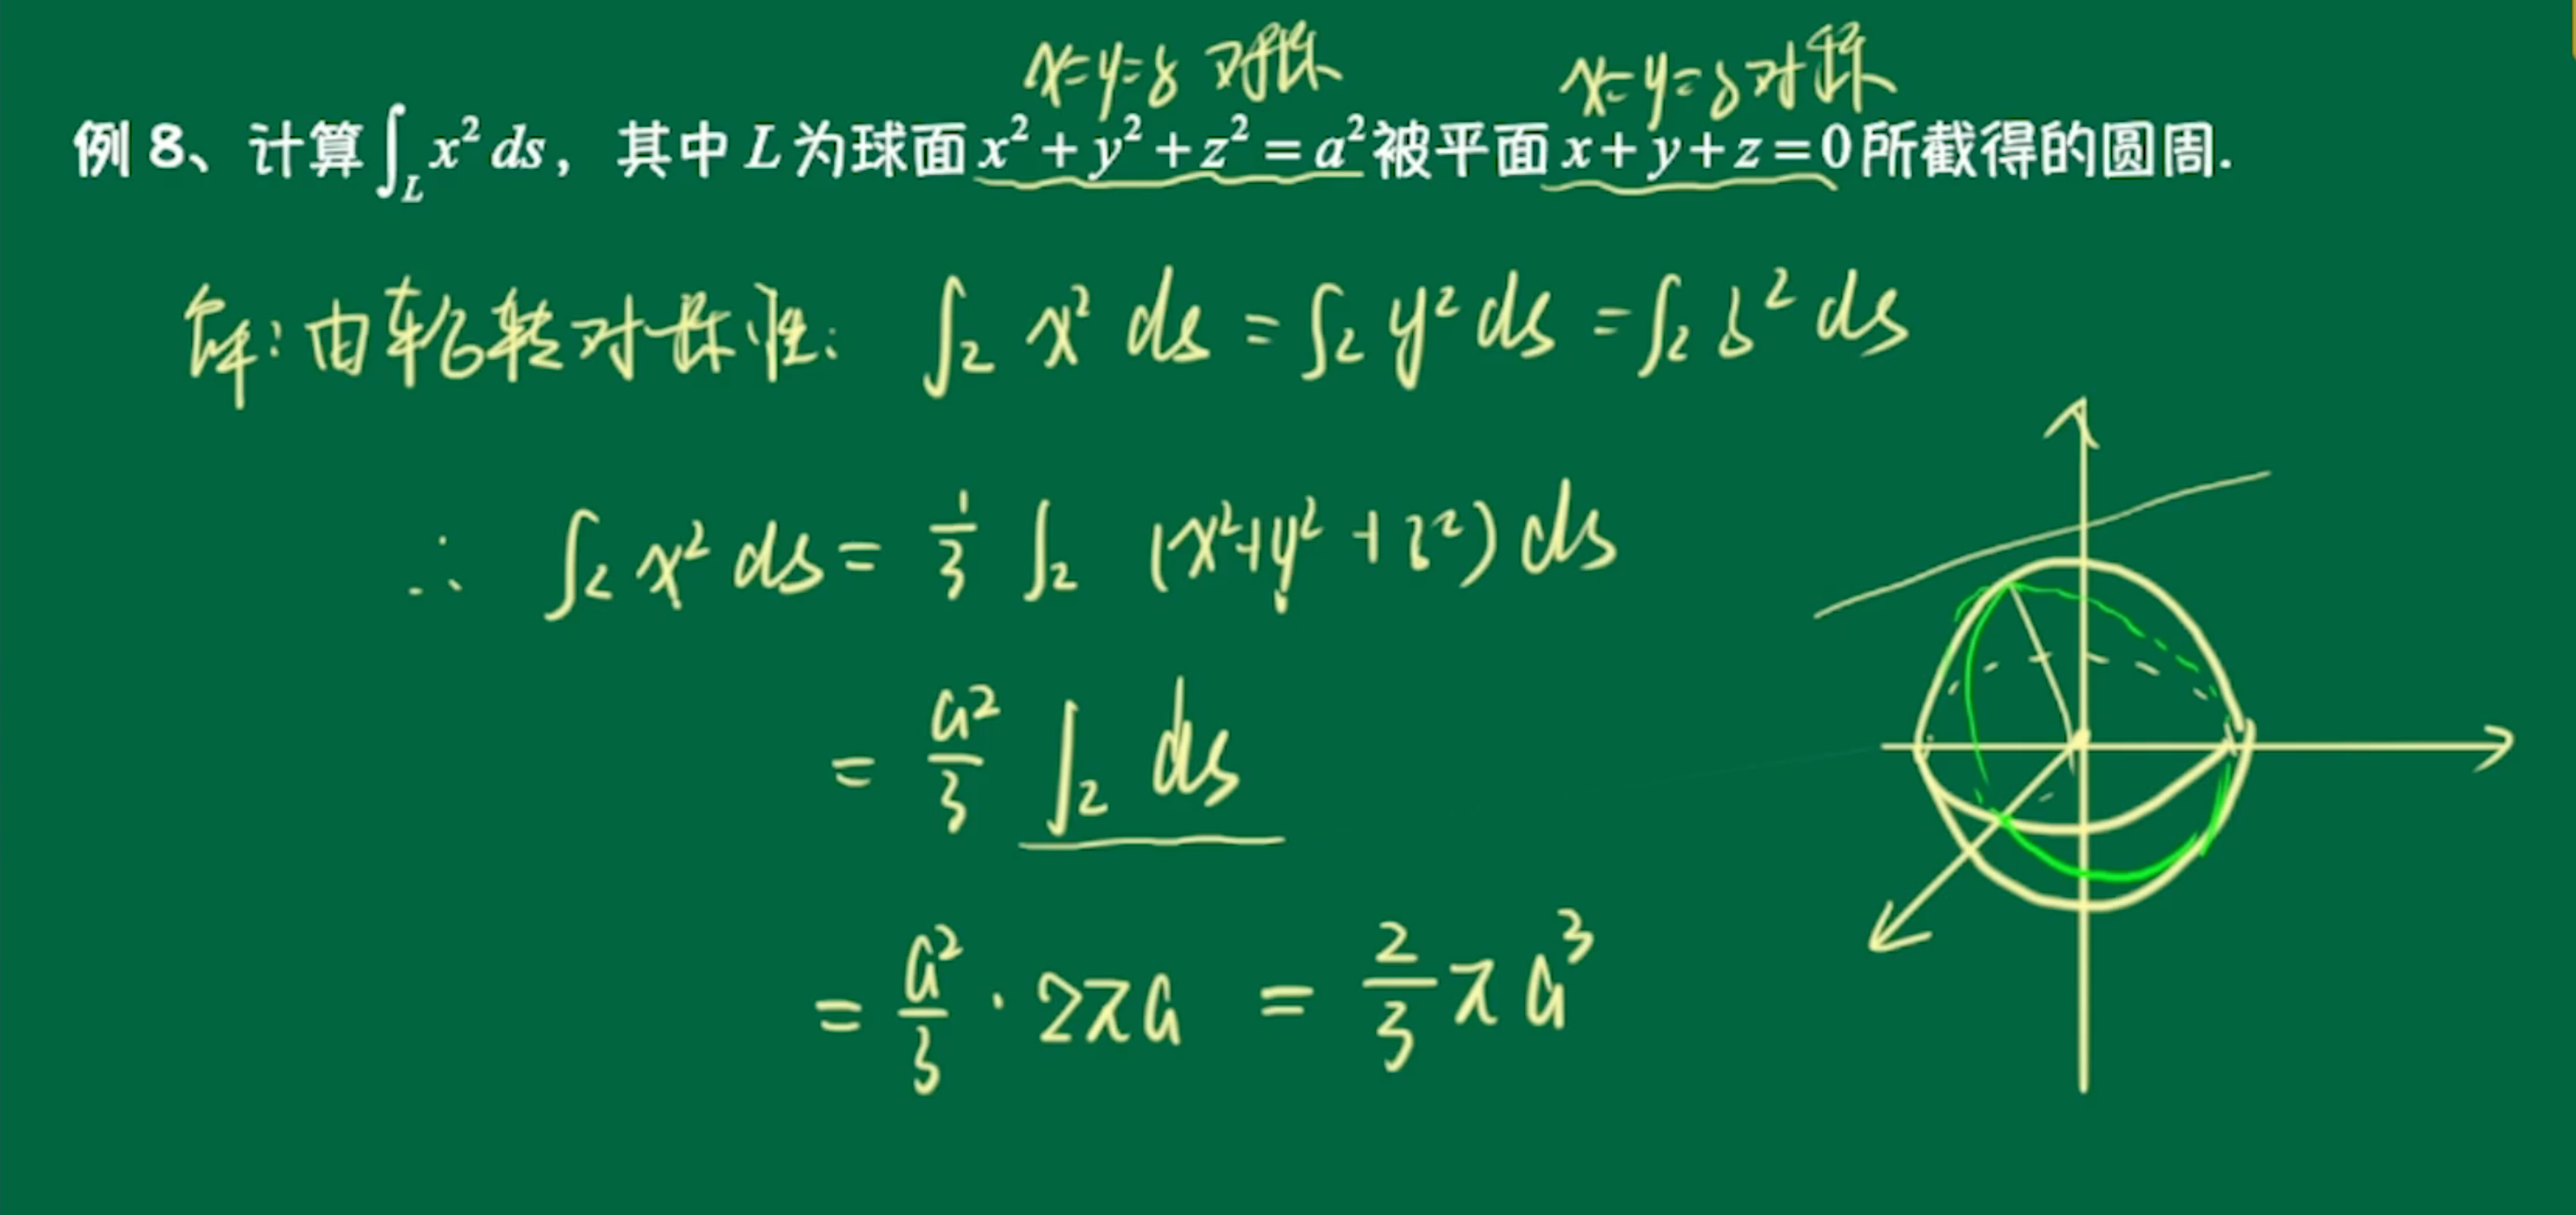 x=y=z对称 x=y=z对称
例 8、计算∫_L x² ds，其中 L 为球面 x² + y² + z² = a² 被平面 x + y + z = 0 所截得的圆周.
解：由轮转对称性： ∫_L x² ds = ∫_L y² ds = ∫_L z² ds
∴ ∫_L x² ds = 1/3 ∫_L (x²+y²+z²) ds
= a²/3 ∫_L ds
= a²/3 · 2πa = 2/3 πa³